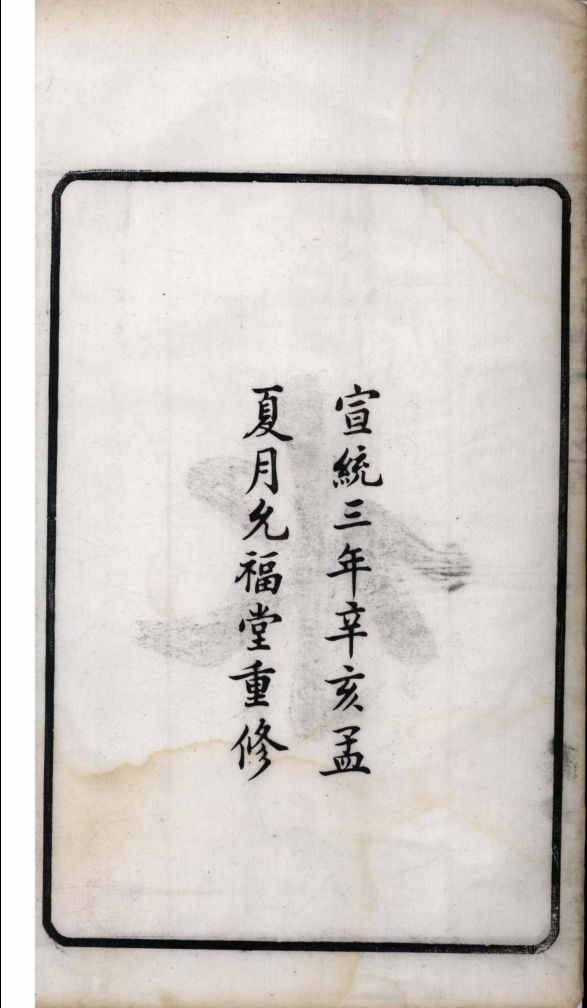 宣統三年辛亥孟
夏月允福堂重修